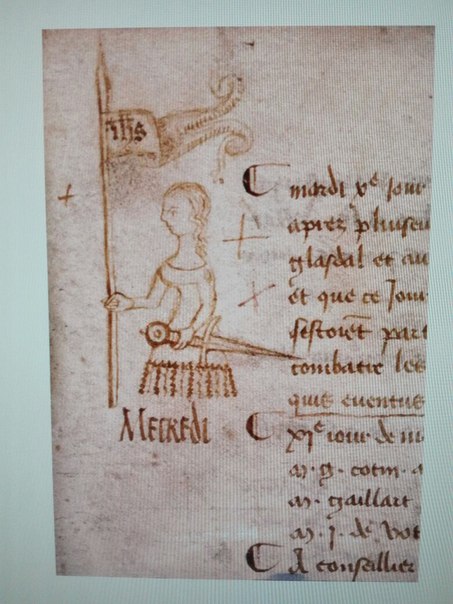 ihs
mardi xe jour
aprez pluiseu
glasdal et au
et que ce jour
sestoiēt part
combatre les
quis eventus
Mecredi
xie jour de m
m. g. cotin. a
m. gaillart
m. j. de vot
A conseillier